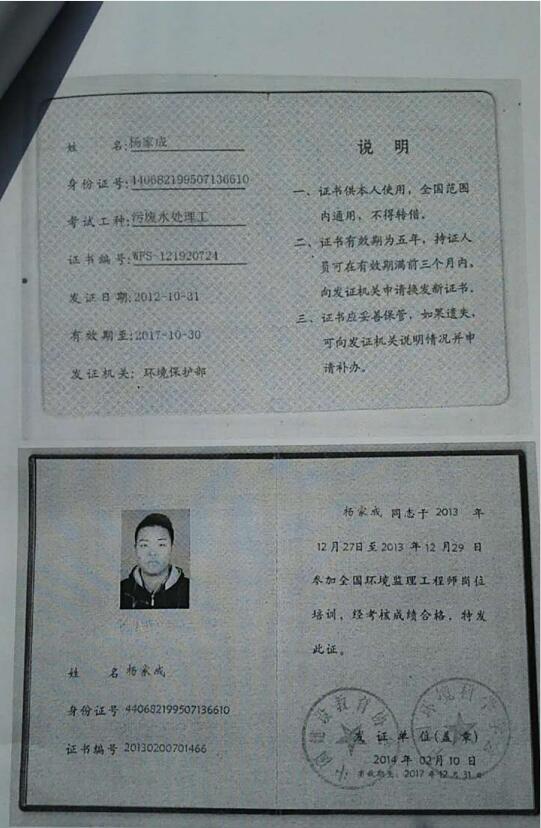 姓 名:杨家成
身份证号:440682199507136610
考试工种:污废水处理工
证书编号:WFS-121920724
发证日期:2012-10-31
有效期至:2017-10-30
发证机关:环境保护部
说 明
一、证书供本人使用,全国范围
内通用,不得转借。
二、证书有效期为五年,持证人
员可在有效期满前三个月内,
向发证机关申请换发新证书。
三、证书应妥善保管,如果遗失,
可向发证机关说明情况并申
请补办。
姓 名 杨家成
身份证号 440682199507136610
证书编号 20130200701466
杨家成 同志于 2013 年
12月27日至2013年12月29日
参加全国环境监理工程师岗位
培训,经考核成绩合格,特发
此证。
中国建设教育协
环境科学学
发证单位(盖章)
2014年02月10日
有效期至:2017年12月31日